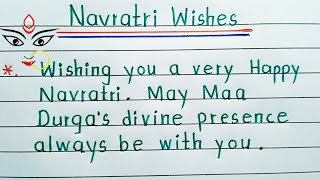 Navratri Wishes
*. Wishing you a very Happy
Navratri. May Maa
Durga's divine presence
always be with you.